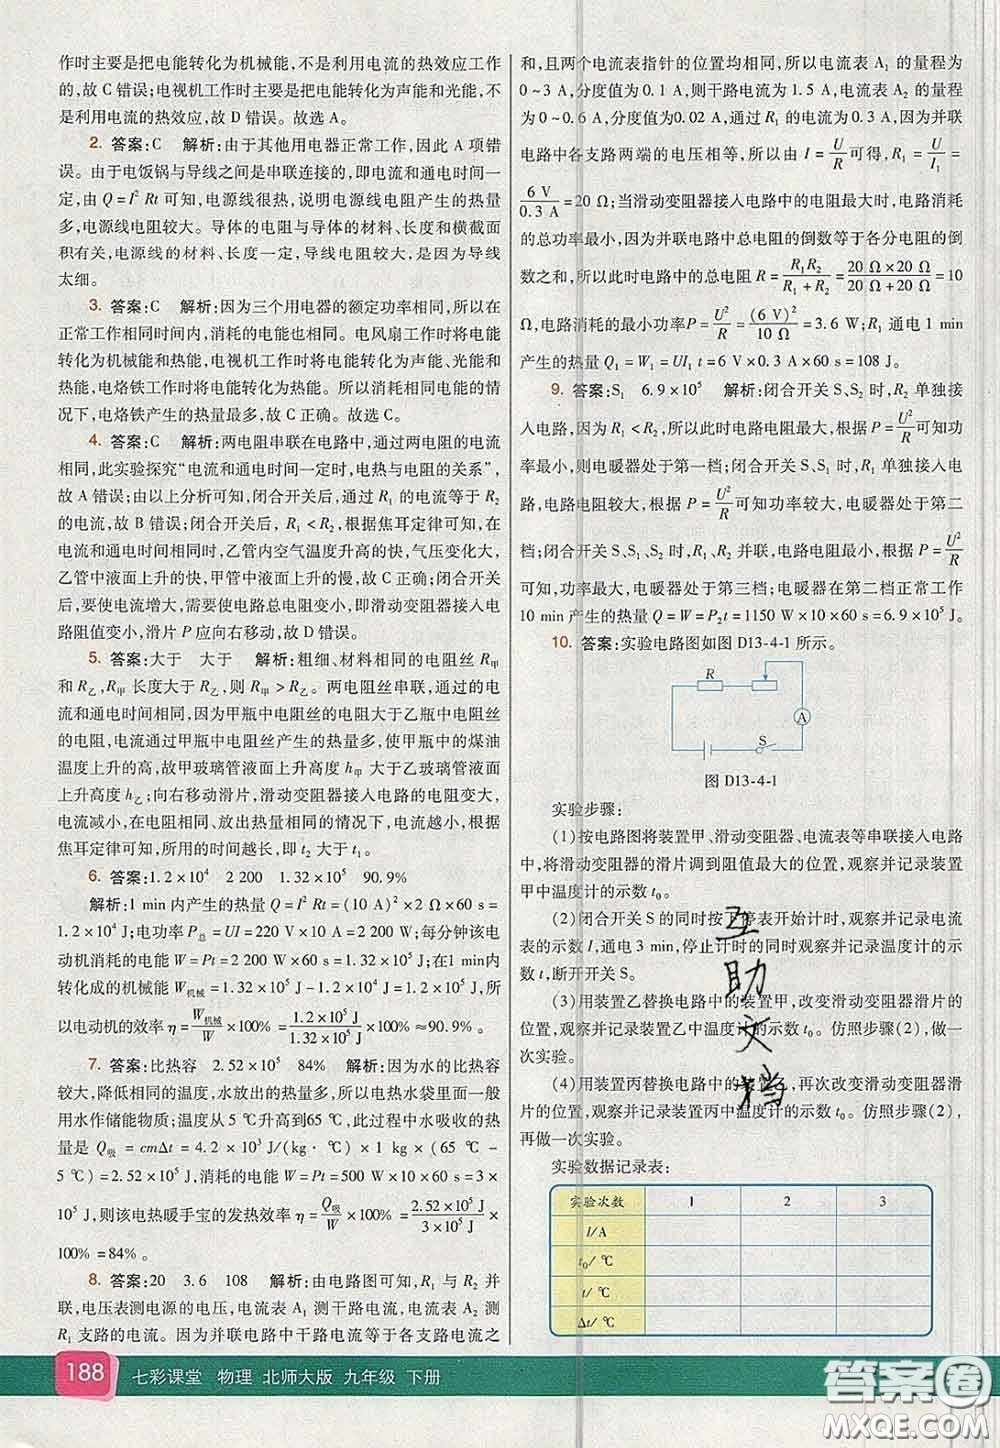 作时主要是把电能转化为机械能,不是利用电流的热效应工作
的,故 C 错误;电视机工作时主要是把电能转化为声能和光能,不
是利用电流的热效应,故 D 错误。故选 A。
2. 答案:C 解析:由于其他用电器正常工作,因此 A 项错
误。由于电饭锅与导线之间是串联连接的,即电流和通电时间一
定,由 Q = I² Rt 可知,电源线很热,说明电源线电阻产生的热量多,
电源线电阻较大。导体的电阻与导体的材料、长度、横截面
面积有关,电源线的材料、长度一定,导线电阻较大,是因为导线
太细。
3. 答案:C 解析:因为三个用电器的额定功率相同,所以在
正常工作相同时间内,消耗的电能也相同。电风扇工作时将电能
转化为机械能和热能,电视机工作时将电能转化为声能、光能和
热能,电烙铁工作时将电能转化为热能。所以消耗相同电能的情
况下,电烙铁产生的热量最多,故 C 正确。故选 C。
4. 答案:C 解析:两电阻串联在电路中,通过两电阻的电流
相同,此实验探究“电流和通电时间一定时,电热与电阻的关系”,
故 A 错误;由以上分析可知,闭合开关后,通过 R₁ 的电流等于 R₂
的电流,故 B 错误;闭合开关后,R₁ < R₂,根据焦耳定律可知,在
电流和通电时间相同时,乙管内空气温度升高的快,气压变化大,
乙管中液面上升的快,甲管中液面上升的慢,故 C 正确;闭合开关
后,要使电流增大,需要使电路总电阻变小,即滑动变阻器接入电
路阻值变小,滑片 P 应向右移动,故 D 错误。
5. 答案:大于 大于 解析:粗细、材料相同的电阻丝 R甲
和 R乙,R甲 长度大于 R乙,则 R甲 > R乙。两电阻丝串联,通过的电
流和通电时间相同,因为甲瓶中电阻丝的电阻大于乙瓶中电阻丝
的电阻,通过甲瓶中电阻丝产生的热量多,使得甲瓶中的煤油
温度上升的高,故甲玻璃管液面上升高度 h甲 大于乙玻璃管液面
上升高度 h乙;向右移动滑片,滑动变阻器接入电路的电阻变大,
电流减小,在电阻相同、放出热量相同的情况下,电流越小,根据
焦耳定律可知,所用的时间越长,即 t₂ 大于 t₁。
6. 答案:1.2 × 10⁴ 2 200 1.32 × 10⁵ 90.9%
解析:1 min 内产生的热量 Q = I² Rt = (10 A)² × 2 Ω × 60 s =
1.2 × 10⁴ J;电功率 P总 = UI = 220 V × 10 A = 2 200 W;每分钟该电
动机消耗的电能 W = Pt = 2 200 W × 60 s = 1.32 × 10⁵ J;在 1 min内
转化成的机械能 W机械 = 1.32 × 10⁵ J - 1.2 × 10⁴ J = 1.2 × 10⁵ J,所
以电动机的效率 η = W机械/W × 100% = 1.2 × 10⁵ J/1.32 × 10⁵ J × 100% ≈ 90.9%。
7. 答案:比热容 2.52 × 10⁵ 84% 解析:因为水的比热容
较大,降低相同的温度,水放出的热量多,所以电热水袋里面一般
用水作储能物质;水温度从 5 ℃升高到65 ℃,此过程中水吸收的热
量是 Q吸 = cmΔt = 4.2 × 10³ J/(kg·℃) × 1 kg × (65 ℃ - 5 ℃) =
2.52 × 10⁵ J,消耗的电能 W = Pt = 500 W × 10 × 60 s = 3 ×
10⁵ J,则该电热暖手宝的发热效率 η = Q吸/W × 100% = 2.52 × 10⁵ J/3 × 10⁵ J ×
100% = 84%。
8. 答案:20 3.6 108 解析:由电路图可知,R₁ 与 R₂ 并
联,电压表测电源的电压,电流表 A₁ 测干路电流,电流表 A₂ 测
R₁ 支路的电流。因为并联电路中干路电流等于各支路电流之
和,且两个电流表指针的位置均相同,所以电流表 A₁ 的量程为
0~3 A,分度值为0.1 A,则干路电流为 1.5 A,电流表 A₂ 的量程
为 0~0.6 A,分度值为0.02 A,通过 R₁ 的电流为 0.3 A,因为并联
电路中各支路两端的电压相等,所以由 I = U/R 可得,R₁ = U/I₁ =
6 V/0.3 A = 20 Ω;当滑动变阻器接入电路中的电阻最大时,电路消耗
的总功率最小,因为并联电路中总电阻的倒数等于各分电阻的倒
数之和,所以此时电路中的总电阻 R = R₁R₂/R₁ + R₂ = 20 Ω × 20 Ω/20 Ω + 20 Ω = 10
Ω,电路消耗的最小功率 P = U²/R = (6 V)²/10 Ω = 3.6 W;R₁ 通电 1 min
产生的热量 Q₁ = W₁ = UI₁t = 6 V × 0.3 A × 60 s = 108 J。
9. 答案:S₁ 6.9 × 10⁵ 解析:闭合开关 S、S₂ 时,R₂ 单独接
入电路,因为 R₁ < R₂,所以此时电路电阻最大,根据 P = U²/R可知功率最
小,则电暖器处于第一档;闭合开关 S、S₁ 时,R₁ 单独接入电
路,电路电阻较大,根据 P = U²/R 可知功率较大,电暖器处于第二
档;闭合开关 S、S₁、S₂ 时,R₁、R₂ 并联,电路电阻最小,根据 P = U²/R
可知,功率最大,电暖器处于第三档;电暖器在第二档正常工作
10 min 产生的热量 Q = W = P₂t = 1150 W × 10 × 60 s = 6.9 × 10⁵ J。
10. 答案:实验电路图如图 D13-4-1 所示。
R
A
S
图 D13-4-1
实验步骤:
(1)按电路图将装置甲、滑动变阻器、电流表等串联接入电路
中,将滑动变阻器的滑片调到阻值最大的位置,观察并记录装置
甲中温度计的示数 t₀。
(2)闭合开关 S 的同时按下停表开始计时,观察并记录电流
表的示数 I,通电 3 min,停止计时的同时观察并记录温度计的示
数 t,断开开关 S。
(3)用装置乙替换电路中的装置甲,改变滑动变阻器滑片的
位置,观察并记录装置乙中温度计的示数 t₀。仿照步骤(2),做一
次实验。
(4)用装置丙替换电路中的装置乙,再次改变滑动变阻器滑
片的位置,观察并记录装置丙中温度计的示数 t₀。仿照步骤(2),
再做一次实验。
实验数据记录表:
实验次数 1 2 3
I/A
t₀/℃
t/℃
Δt/℃
互助文档
188 七彩课堂 物理 北师大版 九年级 下册
答案圈
MXQE.COM